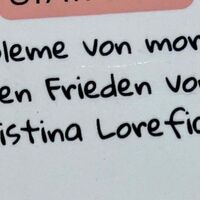 bleme von mor
en Frieden vo
istina Lorefi